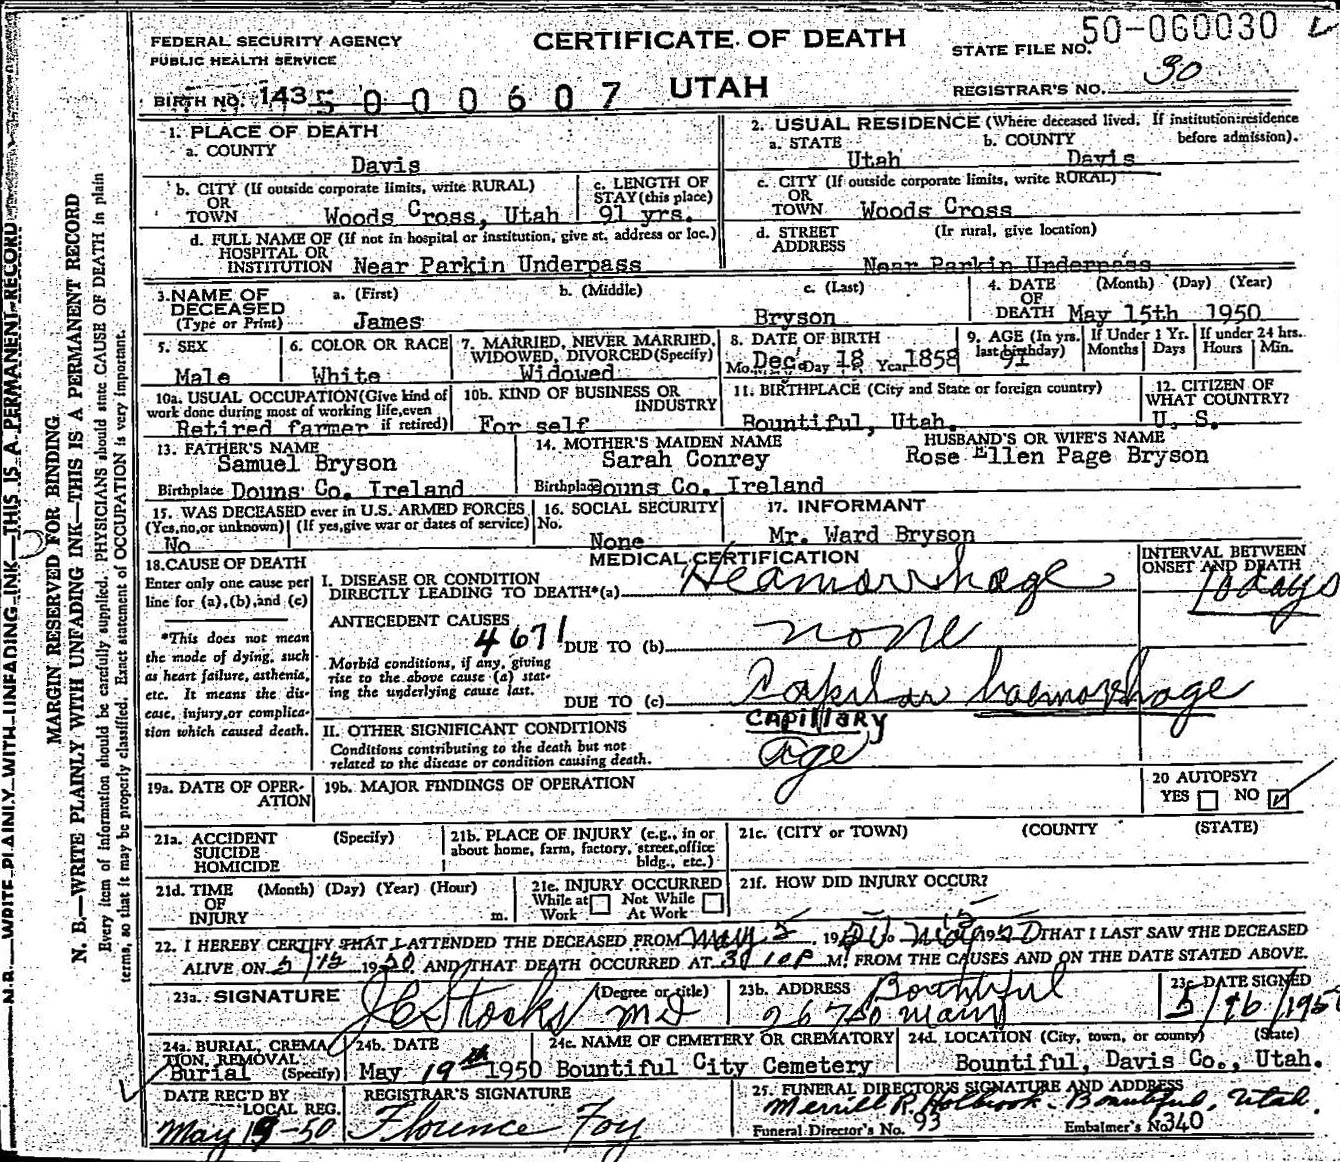 FEDERAL SECURITY AGENCY
PUBLIC HEALTH SERVICE
CERTIFICATE OF DEATH
UTAH
STATE FILE NO. 50-060030
REGISTRAR'S NO. 30
BIRTH NO. 143 5 0 0 0 0 6 0 7
1. PLACE OF DEATH
a. COUNTY
Davis
2. USUAL RESIDENCE (Where deceased lived. If institution: residence before admission).
a. STATE Utah b. COUNTY Davis
b. CITY (If outside corporate limits, write RURAL) OR TOWN Woods Cross, Utah
c. LENGTH OF STAY (this place) 91 yrs.
c. CITY (If outside corporate limits, write RURAL) OR TOWN Woods Cross
d. FULL NAME OF (If not in hospital or institution, give st. address or loc.) HOSPITAL OR INSTITUTION Near Parkin Underpass
d. STREET ADDRESS (If rural, give location) Near Parkin Underpass
3. NAME OF DECEASED (Type or Print)
a. (First) James b. (Middle) c. (Last) Bryson
4. DATE OF DEATH (Month) (Day) (Year) May 15th 1950
5. SEX Male
6. COLOR OR RACE White
7. MARRIED, NEVER MARRIED, WIDOWED, DIVORCED (Specify) Widowed
8. DATE OF BIRTH Mo. Dec. Day 18 Year 1858
9. AGE (In yrs. last birthday) 91
If Under 1 Yr. Months Days
If under 24 hrs. Hours Min.
10a. USUAL OCCUPATION (Give kind of work done during most of working life, even if retired) Retired farmer
10b. KIND OF BUSINESS OR INDUSTRY For self
11. BIRTHPLACE (City and State or foreign country) Bountiful, Utah.
12. CITIZEN OF WHAT COUNTRY? U. S.
13. FATHER'S NAME
Samuel Bryson
Birthplace Douns Co. Ireland
14. MOTHER'S MAIDEN NAME
Sarah Conrey
Birthplace Douns Co. Ireland
HUSBAND'S OR WIFE'S NAME
Rose Ellen Page Bryson
15. WAS DECEASED ever in U.S. ARMED FORCES
(Yes, no, or unknown) (If yes, give war or dates of service)
No
16. SOCIAL SECURITY No.
None
17. INFORMANT
Mr. Ward Bryson
18. CAUSE OF DEATH
Enter only one cause per line for (a), (b), and (c)
MEDICAL CERTIFICATION
INTERVAL BETWEEN ONSET AND DEATH
10 days
I. DISEASE OR CONDITION DIRECTLY LEADING TO DEATH*(a) Heamorrhage
ANTECEDENT CAUSES
4671
DUE TO (b) none
*This does not mean the mode of dying, such as heart failure, asthenia, etc. It means the disease, injury, or complication which caused death.
Morbid conditions, if any, giving rise to the above cause (a) stating the underlying cause last.
DUE TO (c) Capilar haemorrhage
CAPILLARY
II. OTHER SIGNIFICANT CONDITIONS
Conditions contributing to the death but not related to the disease or condition causing death.
Age
19a. DATE OF OPERATION
19b. MAJOR FINDINGS OF OPERATION
20 AUTOPSY?
YES NO ✓
21a. ACCIDENT SUICIDE HOMICIDE (Specify)
21b. PLACE OF INJURY (e.g., in or about home, farm, factory, street, office bldg., etc.)
21c. (CITY or TOWN) (COUNTY) (STATE)
21d. TIME OF INJURY (Month) (Day) (Year) (Hour) m.
21e. INJURY OCCURRED
While at Work Not While At Work
21f. HOW DID INJURY OCCUR?
22. I HEREBY CERTIFY THAT I ATTENDED THE DECEASED FROM May 5, 1950 to May 15 1950 THAT I LAST SAW THE DECEASED
ALIVE ON 5/15 1950 AND THAT DEATH OCCURRED AT M. FROM THE CAUSES AND ON THE DATE STATED ABOVE.
23a. SIGNATURE (Degree or title) J C Stocks MD
23b. ADDRESS Bountiful
Main
23c. DATE SIGNED 5/16/1950
24a. BURIAL, CREMATION, REMOVAL (Specify) Burial
24b. DATE May 19th 1950
24c. NAME OF CEMETERY OR CREMATORY Bountiful City Cemetery
24d. LOCATION (City, town, or county) (State) Bountiful, Davis Co., Utah.
DATE REC'D BY LOCAL REG. May 19-50
REGISTRAR'S SIGNATURE Florence Foy
25. FUNERAL DIRECTOR'S SIGNATURE AND ADDRESS
Merrill R. Holbrook - Bountiful, Utah.
Funeral Director's No. 93 Embalmer's No. 340
N. B.—WRITE PLAINLY WITH UNFADING INK—THIS IS A PERMANENT RECORD
MARGIN RESERVED FOR BINDING
N. B.—WRITE PLAINLY WITH UNFADING INK—THIS IS A PERMANENT RECORD
Every item of information should be carefully supplied. PHYSICIANS should state CAUSE OF DEATH in plain
terms, so that it may be properly classified. Exact statement of OCCUPATION is very important.